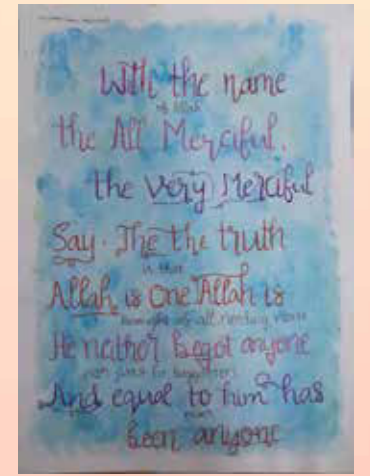 With the name
of Allah
the All Merciful,
the Very Merciful
Say. The the truth
is that
Allah is One Allah is
besought of all, needing none
He neither begot anyone
nor
And equal to him has
been anyone